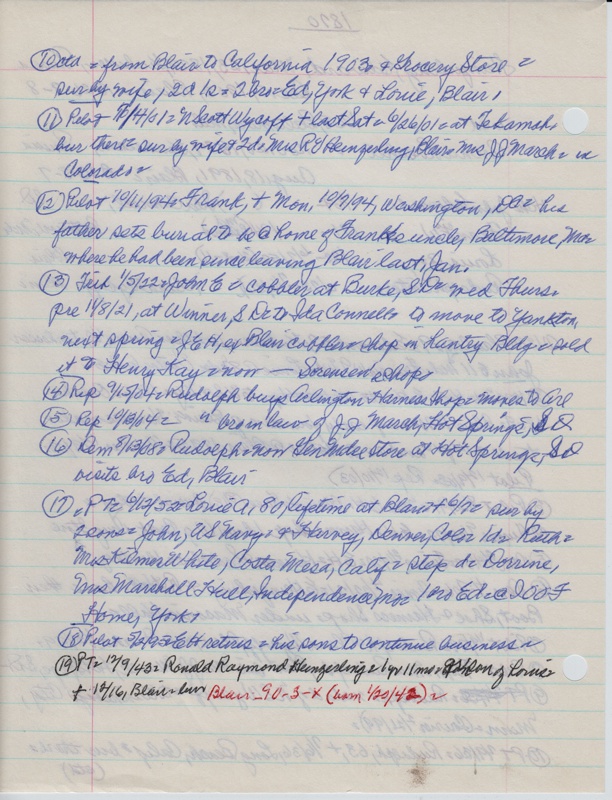 1870
(10) cta = from Blair to California 1903 & Grocery Store =
sur by wife, 2d 1s = 2 bro = Ed, York & Louie, Blair.
(11) Pilot 7/4/01 = N Scott Wycoff + last Sat = 6/26/01 = at Tekamah =
bur there = sur by wife & 2d = Mrs R Y Hungerling, Blair = Mrs J J March = in
Colorado =
(12) Pilot 10/11/94 = Frank, + Mon, 10/7/94, Washington, DC = his
father sets burial to be @ home of Frank's uncle, Baltimore, Mar
where he had been since leaving Blair last, Jan.
(13) 1/5/22 = John E = cobbler at Burke, S D = wed Thurs =
pre 1/8/21, at Winner, S D = to Ida Connell = to move to Yankton,
next spring = J E H, ex Blair cobbler = shop in Lantry Bldg = sold
it to Henry Kay = now — Sorensen shop =
(14) Rep 9/15/04 = Rudolph buys Arlington Harness Shop = moves to Arl
(15) Rep 10/13/04 = " bro in law of J J March, Hot Springs, S D
(16) Dem 8/13/08 = Rudolph = now Gen Mdse Store at Hot Springs, S D
visits bro Ed, Blair
(17) PT = 6/12/52 = Louie A, 80, lifetime at Blair + 6/7 = sur by
2 sons = John, US Navy = & Harvey, Denver, Colo 1d = Ruth =
Mrs Kilmer White, Costa Mesa, Calif = step d = Dorrine,
Mrs Marshall Hull, Independence, Mo = 1 bro Ed = @ IOOF
Home, York.
(18) Pilot = E H retires = his sons to continue business =
(19) PT = 12/9/43 = Ronald Raymond Hungerling = 1 yr 11 mo = son of Louis =
+ 12/16, Blair = bur Blair - 90-3-X (born 1/20/42) =